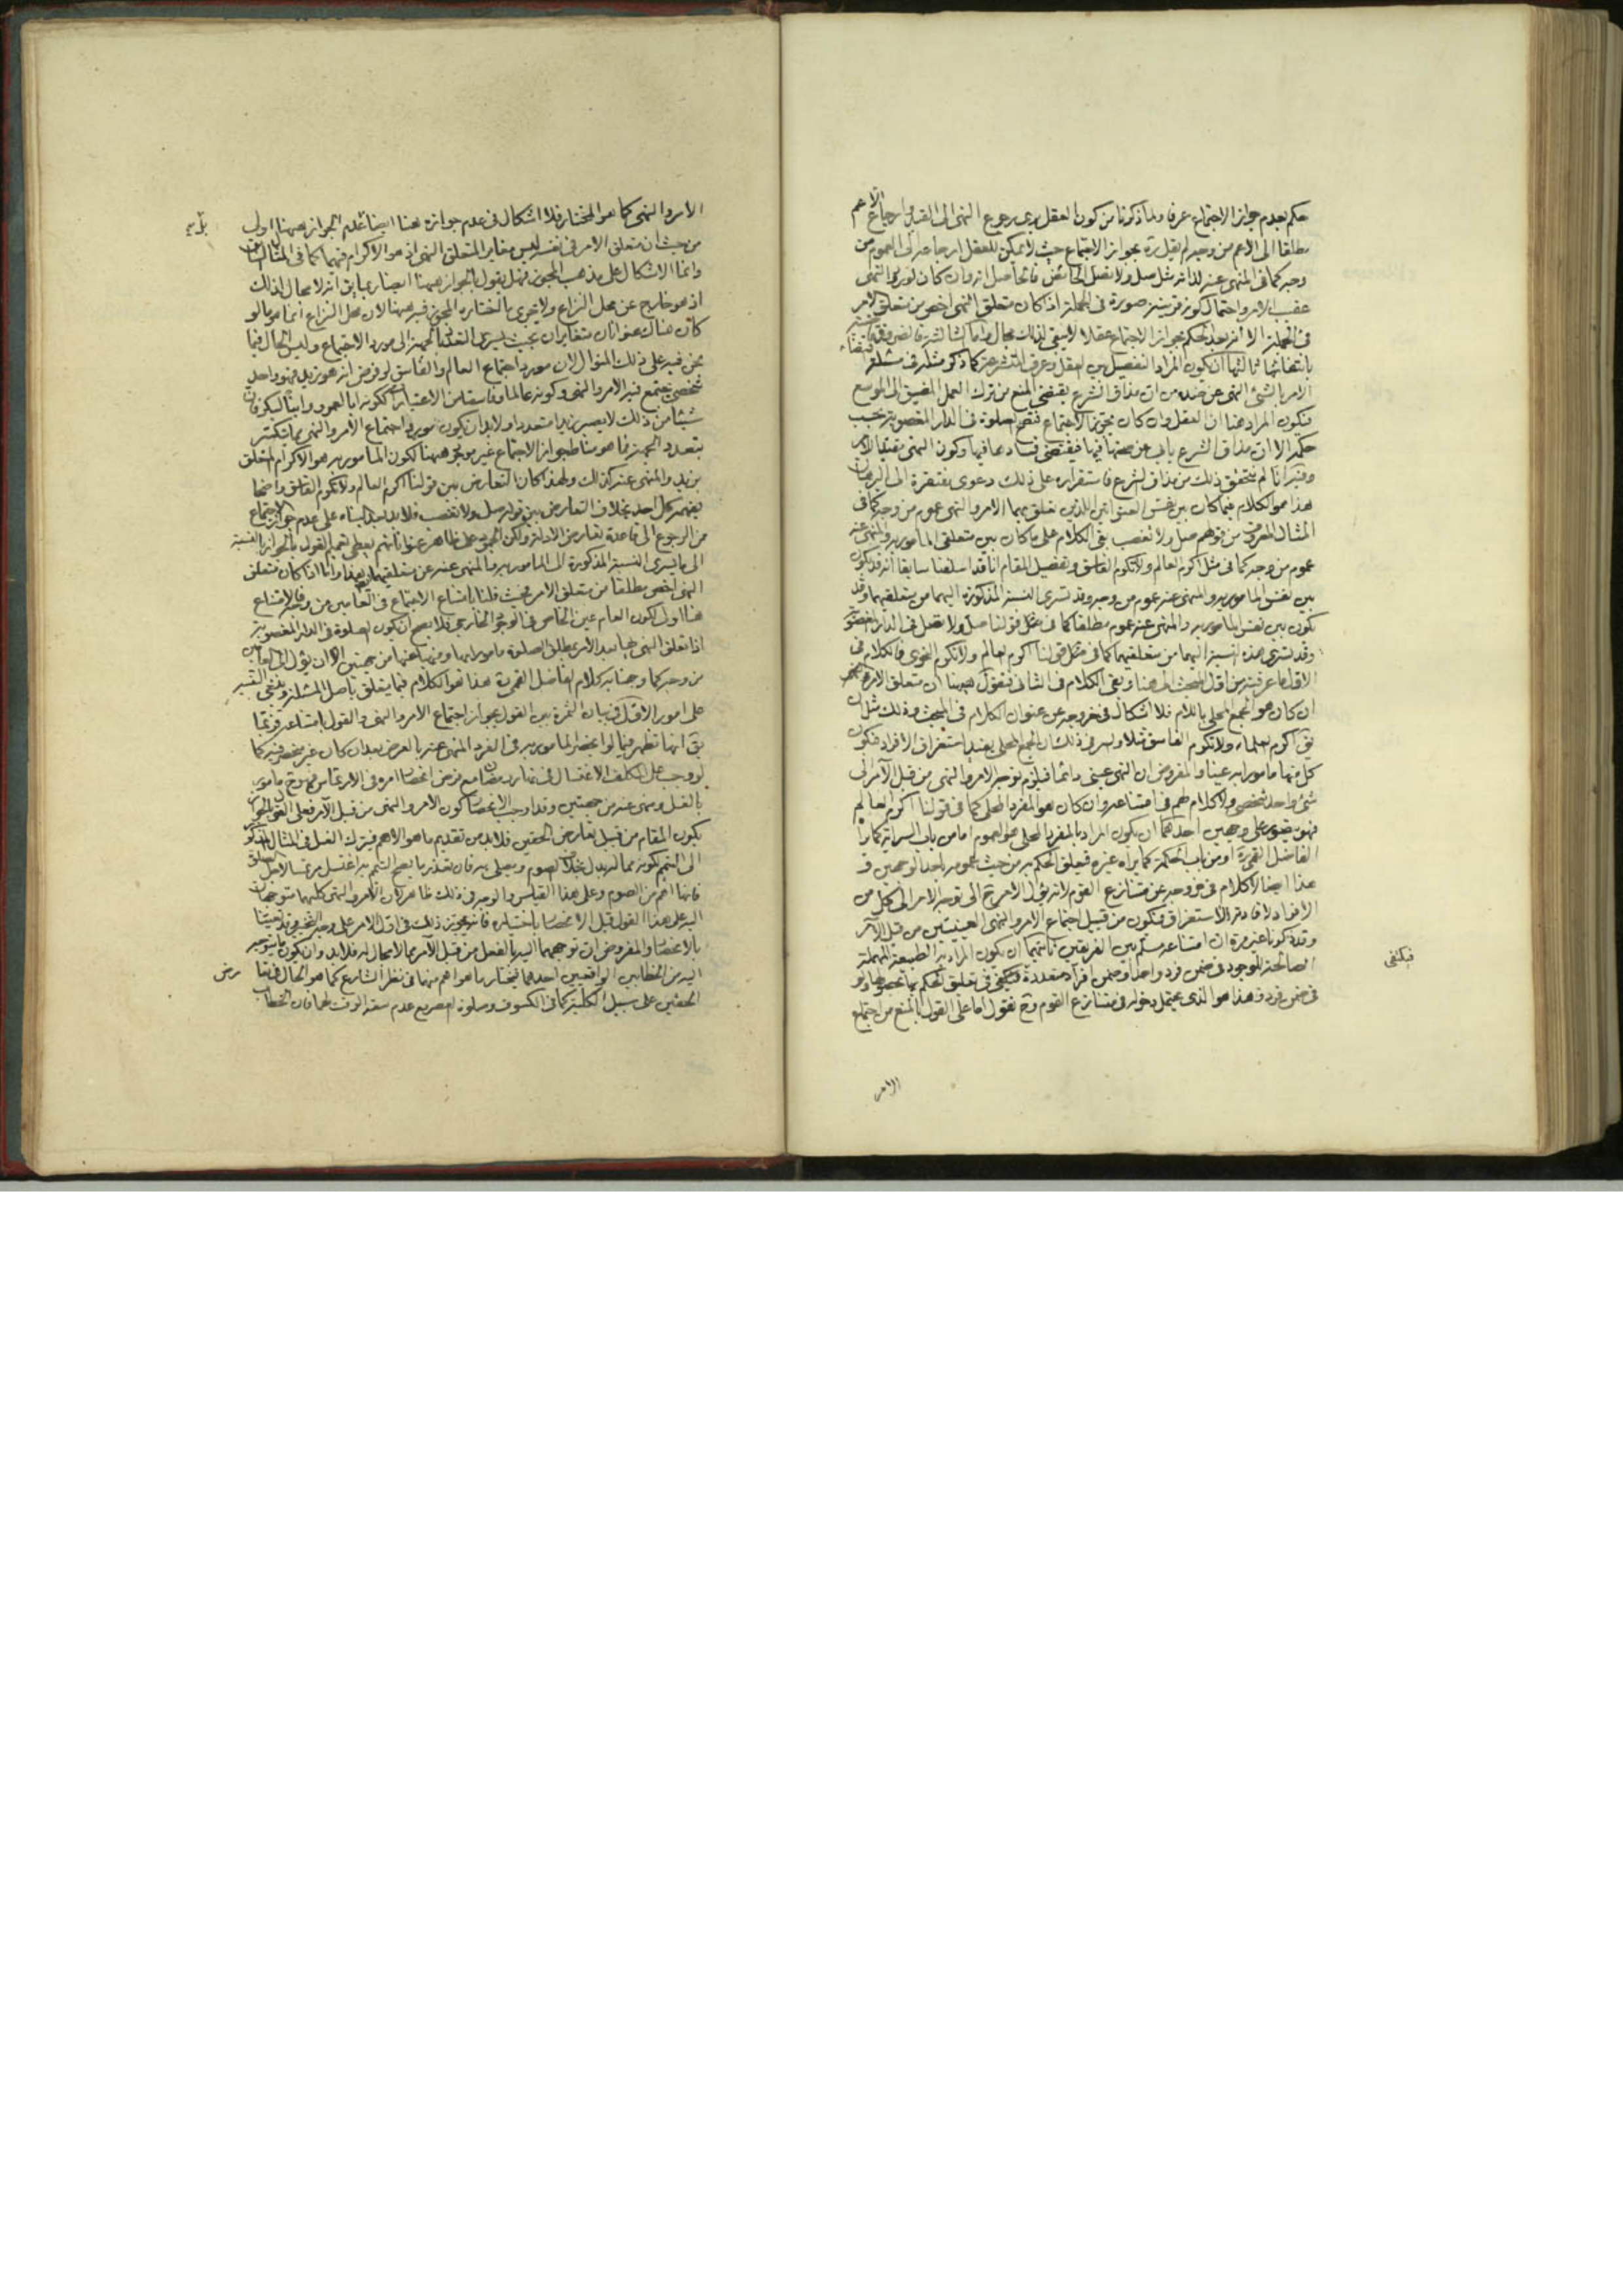 حكم بعدم جواز الاجتماع عرفا ولما ذكرنا من كون العقل يرى رجوع النهى الى القيد
مطلقا الى الاعم من وجه لم يقل بجواز الاجتماع حيث لا يمكن للعقل ارجاعه الى العموم من
وجه كما فى المنهى عنه لذاته مثل صل ولا تصل الحائض
عقيب الامر واحتمال كونه قرينة صورة فى الجملة اذا كان متعلق النهى اخص من متعلق الامر
فى الجملة الا انه بعد الحكم بجواز الاجتماع عقلا لا يبقى لذلك مجال واما الثالثة
بانتفائها ثالثها ان يكون المراد التفصيل بين العقل وعرف المتشرعة كما ذكر مثله فى مسئلة
الامر بالشئ النهى عن ضده من ان مذاق الشرع يقتضى المنع من ترك العمل المضيق الى الموسع
فيكون المراد هنا ان العقل وان كان يجوز الاجتماع فتصح الصلوة فى الدار المغصوبة بحسب
حكمه الا ان مذاق الشرع ياب عن صحتها فيها فيقتضى فسادها فيها وكون النهى مقيدا للامر
وفيه انا لم نتحقق ذلك من مذاق الشرع فاستقراره على ذلك دعوى مفتقرة الى البرهان
هذا هو الكلام فيما كان بين نفس العنوانين اللذين تعلق بهما الامر والنهى عموم من وجه كما فى
المثال المعروف من قولهم صل ولا تغصب بقى الكلام على ما كان بين متعلقى المامور به والمنهى عنه
عموم من وجه كما فى مثل اكرم العالم ولا تكرم الفاسق وتفصيل المقام انا قد اسلفنا سابقا انه قد يكون
بين نفس المامور به والمنهى عنه عموم من وجه وقد تسرى النسبة المذكورة اليهما من متعلقيهما وقد
يكون بين نفس المامور به والمنهى عنه عموم مطلقا كما فى مثل قولنا صل ولا تصل فى الدار المغصوبة
وقد تسرى هذه النسبة اليهما من متعلقيهما كما فى مثل قولنا اكرم العالم ولا تكرم النحوى فالكلام فى
الاول ما عرفته من اول المبحث الى هنا وبقى الكلام فى الثانى فنقول هيهنا ان متعلق الامر
ان كان هو الجمع المحلى باللام فلا اشكال فى خروجه عن عنوان الكلام فى المبحث وذلك مثل ان
يق اكرم العلماء ولا تكرم الفاسق مثلا والسر فى ذلك ان الجمع المحلى يفيد استغراق الافراد فيكون
كل منها مامورا به عينا والمفروض ان النهى عينى دائما فيلزم توجه الامر والنهى من قبل الآمر الى
شئ واحد شخصى ولا كلام لهم فى امتناعه وان كان هو المفرد المحلى كما فى قولنا اكرم العالم
فهو يتصور على وجهين احدهما ان يكون المراد بالمفرد المحلى هو العموم اما من باب السراية كما رآ
الفاضل القمى ره او من باب الحكمة كما يراه غيره فيعلق الحكم به من حيث عمومه باحد الوجهين و
هذا ايضا لا كلام فى خروجه عن متنازع القوم لانه يؤل الامر ح الى توجه الامر الى كل من
الافراد لافادته الاستغراق فيكون من قبيل اجتماع الامر والنهى العينيين من قبل الآمر
وقد ذكرنا غير مرة ان امتناعه مسلم بين الفريقين ثانيهما ان يكون المراد به الطبيعة المهملة
الصالحة للوجود فى ضمن فرد واحد او ضمن افراد متعددة فيكفى فى تعلق الحكم بها
فى ضمن فرد وهذا هو الذى يحتمل دخوله فى متنازع القوم وح نقول اما على القول بالمنع من اجتماع
الامر
فيكفى
الامر والنهى كما هو المختار فلا اشكال فى عدم جوازه هنا ايضا عدم الجواز هيهنا اولى
من حيث ان متعلق الامر فى نفسه ليس مغايرا لمتعلق النهى اذ هو الاكرام فيهما كما فى المثال
وانما الاشكال على مذهب المجوز فهل يقول بالجواز هيهنا ايضا ربما يق انه لا مجال لذلك
اذ هو خارج عن محل النزاع ولا يجرى ما اختاره المجوز فيه هيهنا لان محل النزاع انما هو ما لو
كان هناك عنوانان متغايران بحيث يسرى تعدد الجهة الى مورد الاجتماع وليس الحال فيما
نحن فيه على ذلك المنوال لان مورد اجتماع العالم والفاسق لو فرض انه هو زيد فهو واحد
شخصى يجتمع فيه الامر والنهى وكونه عالما وفاسقا من الاعتبارات ككونه ابا لعمرو وابنا لبكر فان
شيئا من ذلك لا يصير زيدا متعددا ولا بد ان يكون مورد اجتماع الامر والنهى مما يتكثر
بتعدد الجهة فما هو مناط جواز الاجتماع غير موجود هيهنا لكون المامور به هو الاكرام المتعلق
بزيد والمنهى عنه كذلك ولهذا كان التعارض بين قولنا اكرم العالم ولا تكرم الفاسق واضحا
يفهمه كل احد بخلاف التعارض بين قوله صل ولا تغصب فلا بد بعد البناء على عدم جواز الاجتماع
من الرجوع الى قاعدة تعارض الادلة ولكن الموجود على ظاهر عنوانهم يعطى تعميم القول بالجواز بالنسبة
الى ما يسرى النسبة المذكورة الى المامور به والمنهى عنه من متعلقيهما هذا واما اذا كان متعلق
النهى اخص مطلقا من متعلق الامر فحيث قلنا بامتناع الاجتماع فى العامين من وجه فالامتناع
هنا اولى لكون العام عين الخاص فى الوجود الخارجى فلا يصح ان يكون الصلوة فى الدار المغصوبة
اذا تعلق النهى بها بعد الامر بمطلق الصلوة مامورا بها ومنهيا عنها من جهتين الا ان يؤل الى العامين
من وجه كما وجهنا به كلام الفاضل القمى ره هذا تمام الكلام فيما يتعلق باصل المسئلة وينبغى التنبيه
على امور الاول فى بيان الثمرة بين القول بجواز اجتماع الامر والنهى والقول بامتناعه فربما
يق انها تظهر فيما لو انحصر المامور به فى الفرد المنهى عنه بالعرض بعد ان كان غير منحصر فيه كما
لو وجب على المكلف الاغتسال فى نهار رمضان مع فرض انحصار امره فى الارتماس فهو ح مامور
بالغسل ومنهى عنه من جهتين وقد اوجب الانحصار كون الامر والنهى من قبل الآمر فعلى القول بالجواز
يكون المقام من قبيل تعارض الحقين فلا بد من تقديم ما هو الاهم فيترك الغسل فى المثال المذكور
الى التيمم لكونه مما له بدل بخلاف الصوم ويصلى به فان تعذر ما يصح التيمم به اغتسل مرتمسا لاجل الصلوة
فانها اهم من الصوم وعلى هذا القياس والوجه فى ذلك ظاهر لان الامر والنهى كليهما متوجهان
اليه على هذا القول قبل الانحصار باختياره
بالانحصار والمفروض ان توجههما اليه بالفعل من قبل الآمر مما لا مجال له فلا بد وان يكون ما يتوجه
اليه من الخطابين الواقعيين احدهما فيختار ما هو اهم منهما فى نظر الشارع كما هو الحال فى تعارض
الحقين على سبيل الكلية كما فى الكسوف وصلوة العصر مع عدم سعة الوقت لهما فان الخطاب